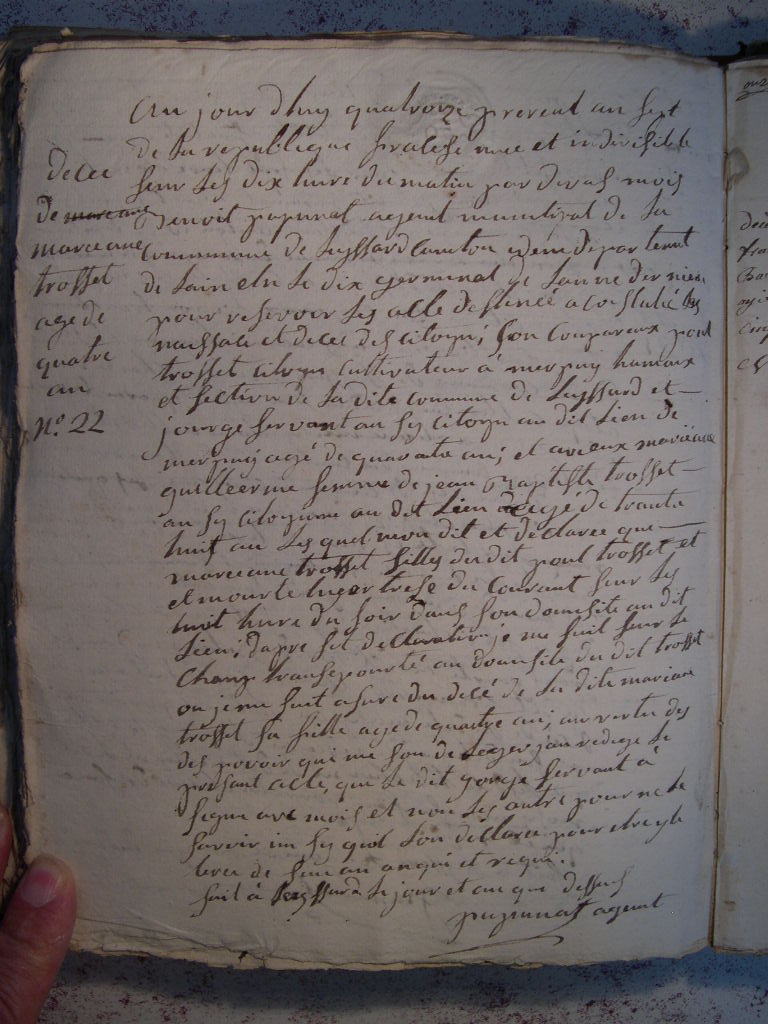 decee
de marceane
marceane
trosset
age de
quatre
an
N.º 22
Au jour dhuy quatorze prereal an sept
de la republique fransese unee et indivisible
seur les dix hure du matin par devas mois
Benoit papunat agent municipal de la
commune de Leyssard canton idem departemt
de lain elu le dix germinal de lanne derniere
pour resevoir les acte destinée a constatée les
naissace et deces des citoyns; son compareux poul
trosset citoyn cultivateur à merpuis humaux
et section de la dite commune de Leyssard et
jourge servant au sy citoyn au dit lieu de
merpuis agé de quarante an; et aveeux marceane
guilleerme femme de jean Baptiste trosset
au sy citoyene au dit lieu agé de trante
huit an les quel mon dit et declaree que
marceane trosset fillis du dit poul trosset et
et mourte hyer trese du courant seur les
huit hure du soir dans son domisile au dit
lieu; dapre set declaration je me suit seur le
champ transpourté au domisile du dit trosset
ou je me suit asure du decé de la dite mariane
trosset sa fille age de quatre an; an vertu des
des povoir qui me son deleger jan redige le
presant acte, que le dit gorge servant à
signe avec mois et non les autre pour ne le
savoir im sy quil lon declaree pour
de seu an anqui et requi.
fait à Leyssard le jour et an que dessus
papunat agent